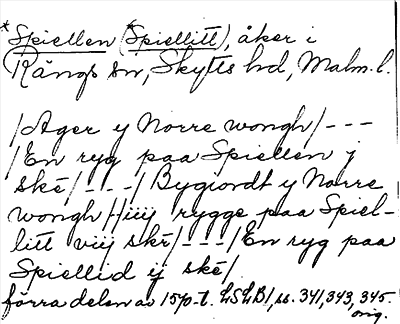 *Spiellen (*Spiellitt), åker i
Rängs sn, Skytts hd, Malm. l.
/Ager y Norre wongh/---
/En ryg paa Spiellen j
ske/---/Bygiordt y Norre
wongh/iiij rygge paa Spiel-
litt viij ske/---/En ryg paa
Spiellid ij ske/
förra delen av 1570-t. LSLB1, ss. 341, 343, 345.
orig.